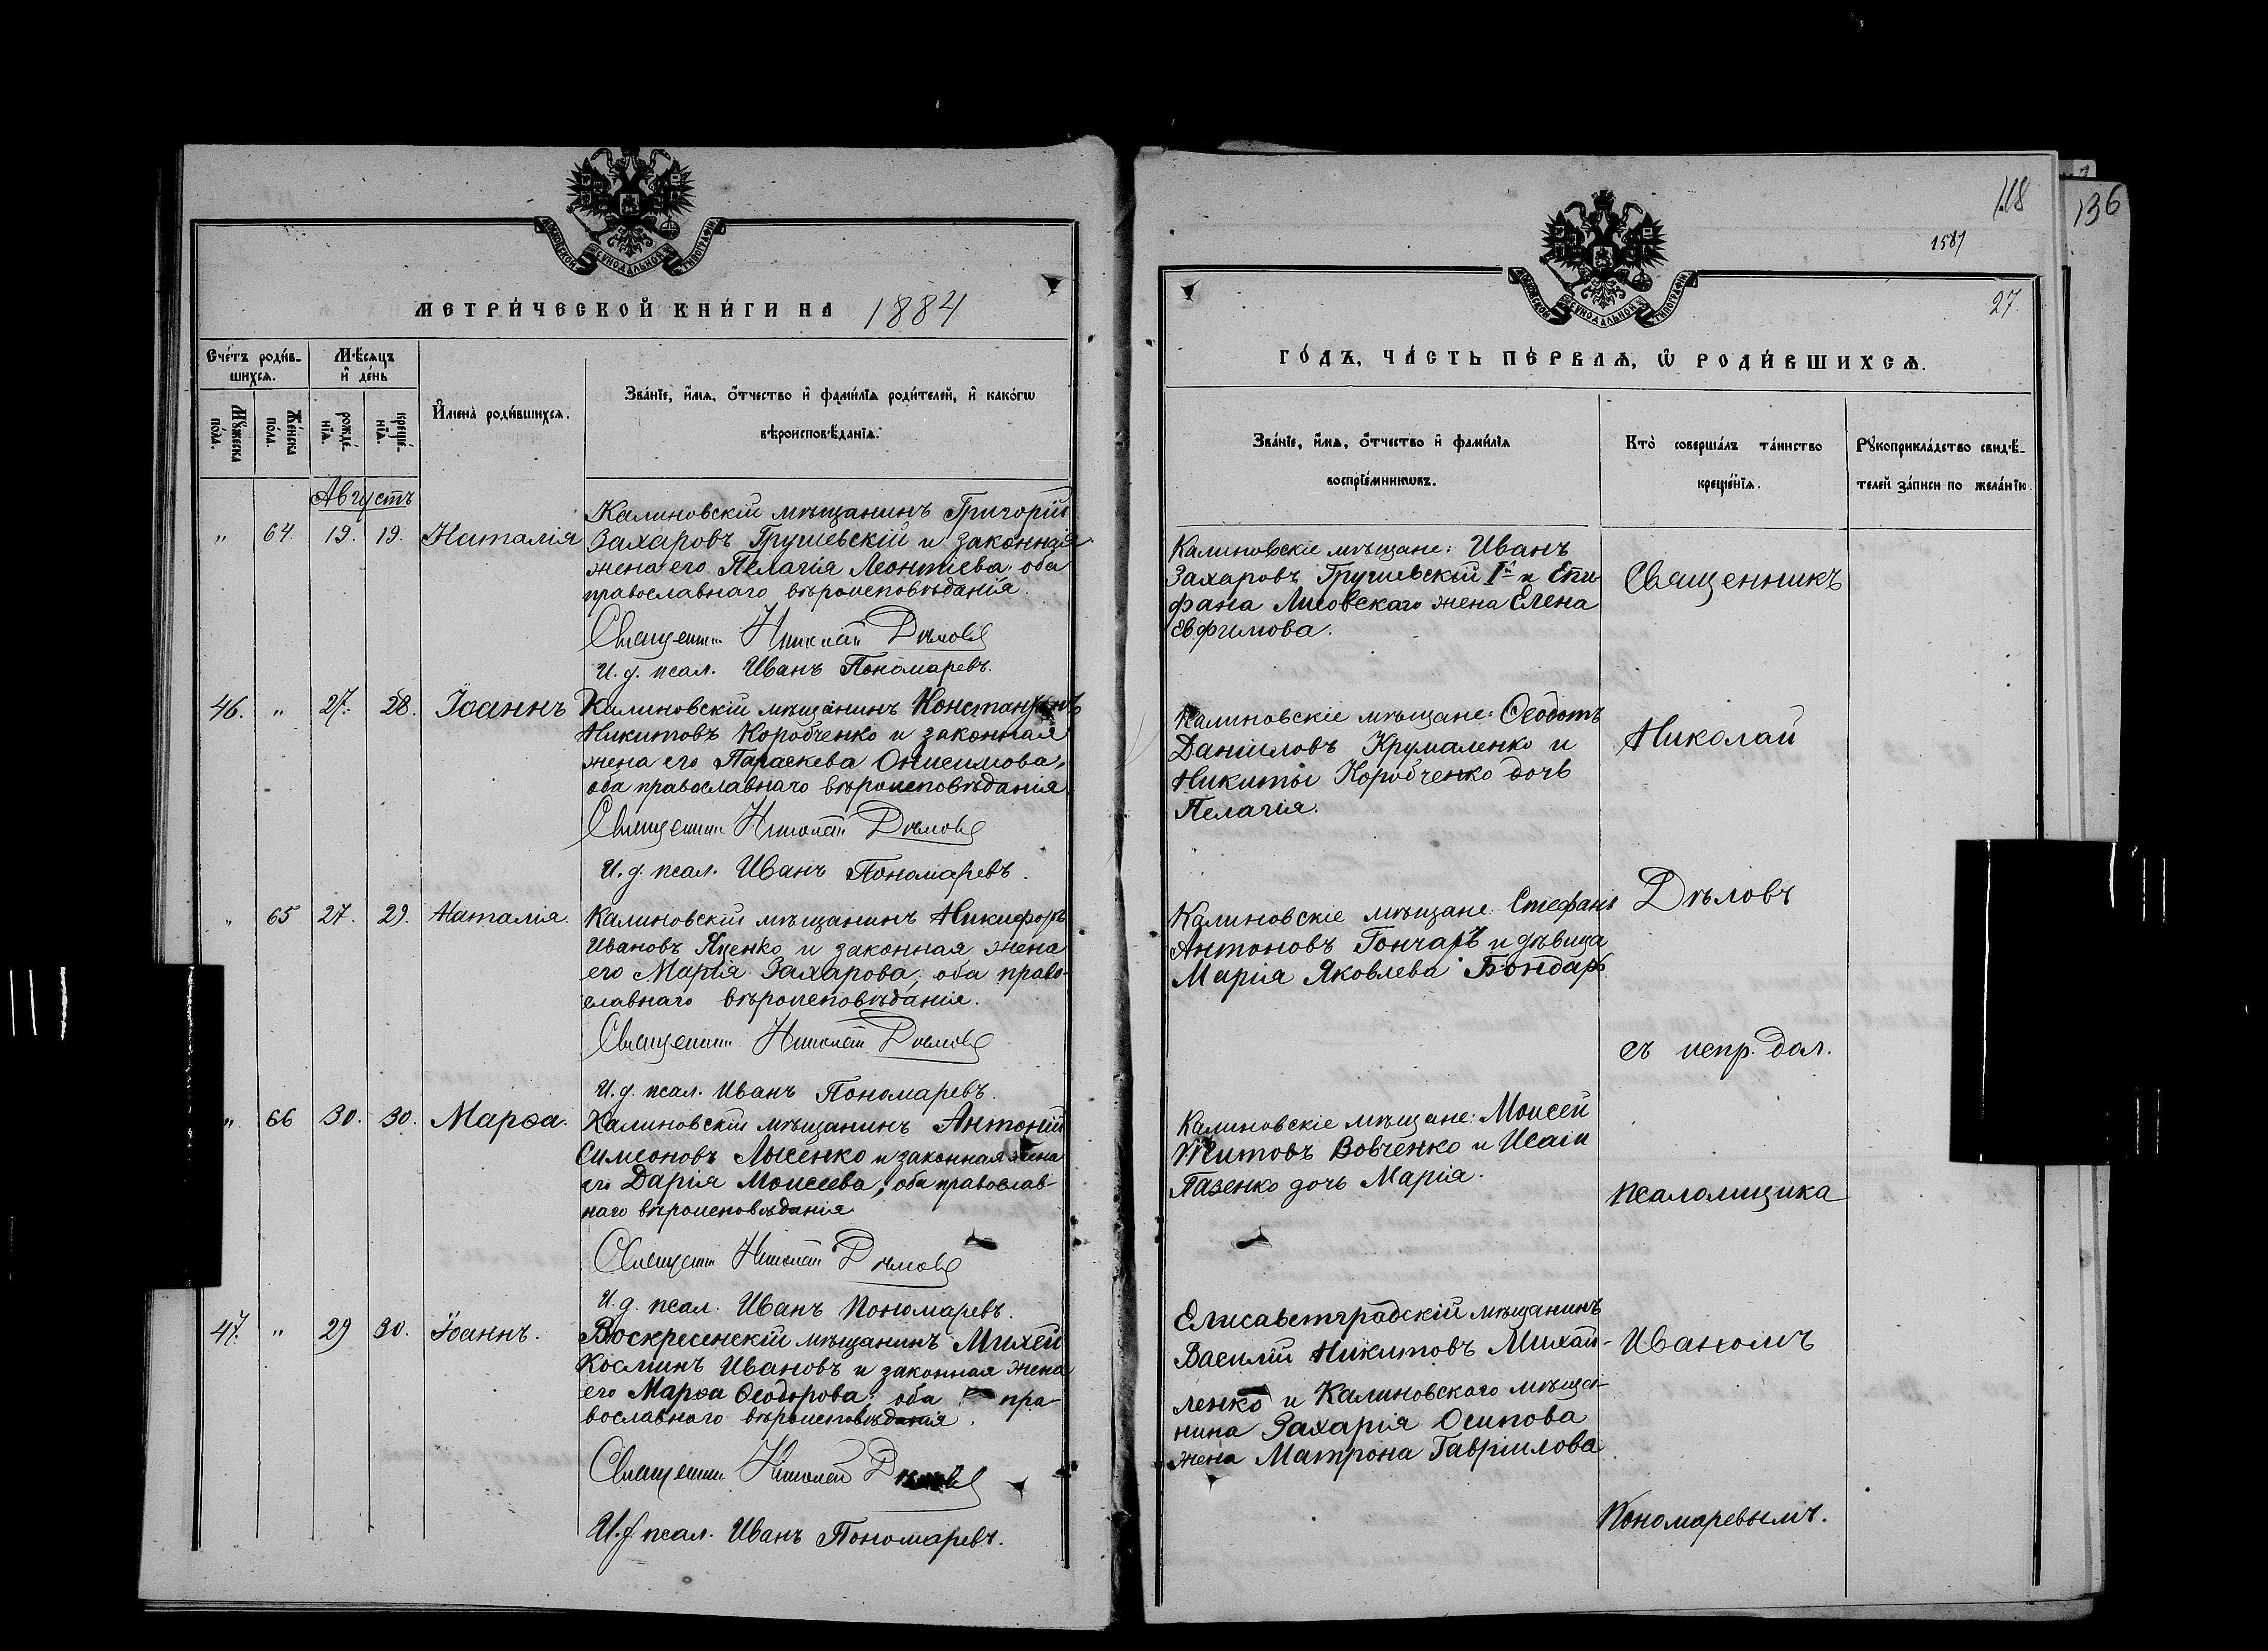 МОСКОВСКОЙ СѴНОДАЛЬНОЙ ТИПОГРАФІИ
МЕТРИ́ЧЕСКОЙ КНИ́ГИ НА 1884
Сче́тъ роди́в-
шихсѧ.
Мѣ́сѧцъ
и҆ де́нь
Мꙋ́жеска
по́ла.
Же́нска
по́ла.
рожде́-
нїѧ.
креще́-
нїѧ.
И҆мена̀ роди́вшихсѧ.
Зва́нїе, и҆́мѧ, ѻ҆́тчество и҆ фами́лїѧ роди́телей, и҆ како́гѡ
вѣроисповѣ́данїѧ.
Августъ
Калиновскій мѣщанинъ Григорій
" 64. 19. 19. Наталія Захаровъ Грушевскій и законная
жена его Пелагія Леонтіева, оба
православнаго вѣроисповѣданія.
Священникъ Николай Дѣловъ
И. д. псал. Иванъ Пономаревъ.
46. " 27. 28. Іоаннъ Калиновскій мѣщанинъ Константинъ
Никитовъ Коробченко и законная
жена его Параскева Онисимова,
оба православнаго вѣроисповѣданія.
Священникъ Николай Дѣловъ
И. д. псал. Иванъ Пономаревъ.
" 65 27. 29. Наталія. Калиновскій мѣщанинъ Никифоръ
Ивановъ Яценко и законная жена
его Марія Захарова, оба право-
славнаго вѣроисповѣданія.
Священникъ Николай Дѣловъ
И. д. псал. Иванъ Пономаревъ.
" 66 30. 30. Марѳа. Калиновскій мѣщанинъ Антоній
Симеоновъ Лысенко и законная жена
его Дарія Моисеева, оба православ-
наго вѣроисповѣданія
Священникъ Николай Дѣловъ
И. д. псал. Иванъ Пономаревъ.
47. " 29 30. Іоаннъ. Воскресенскій мѣщанинъ Михей
Косминъ Ивановъ и законная жена
его Марѳа Ѳеодорова, оба пра-
вославнаго вѣроисповѣданія.
Священникъ Николай Дѣловъ
И. д. псал. Иванъ Пономаревъ.
118
136
1581
27.
МОСКОВСКОЙ СѴНОДАЛЬНОЙ ТИПОГРАФІИ
ГО́ДЪ, ЧА́СТЬ ПЕ́РВАѦ, Ѽ РОДИ́ВШИХСѦ.
Зва́нїе, и҆́мѧ, ѻ҆́тчество и҆ фами́лїѧ
воспрїе́мникѡвъ.
Кто̀ соверша́лъ та́инство
креще́нїѧ.
Рꙋкоприкла́дство свидѣ́-
телей за́писи по жела́нїю.
Калиновскіе мѣщане: Иванъ
Захаровъ Грушевскій Iй и Епи-
фана Лисовскаго жена Елена
Евфимова.
Священникъ
Калиновскіе мѣщане: Ѳеодотъ
Даніиловъ Крумаленко и
Никиты Коробченко дочь
Пелагія.
Николай
Калиновскіе мѣщане: Стефанъ
Антоновъ Гончаръ и дѣвица
Марія Яковлева Бондарь.
Дѣловъ
съ испр. дол.
Калиновскіе мѣщане: Моисей
Титовъ Вовченко и Исаіи
Пазенко дочь Марія.
псаломщика
Елисаветградскій мѣщанинъ
Василій Никитовъ Михай-
ленко и Калиновскаго мѣща-
нина Захарія Осипова
жена Матрона Гавріилова
Иваномъ
Пономаревымъ.